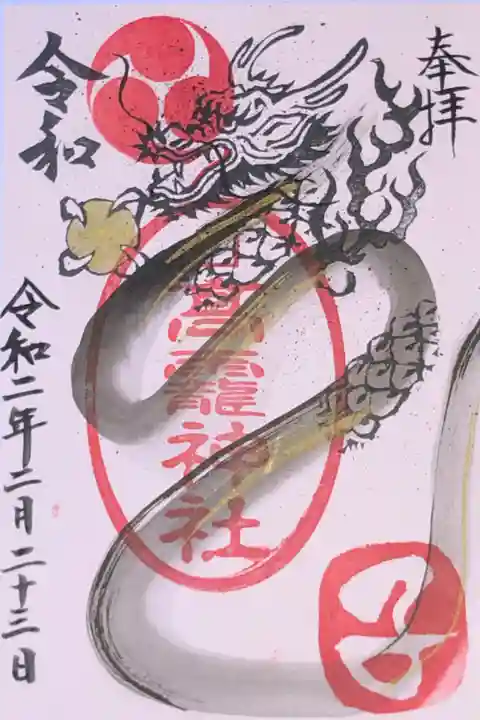 奉拝
令和
令和二年二月二十三日
高龗神社